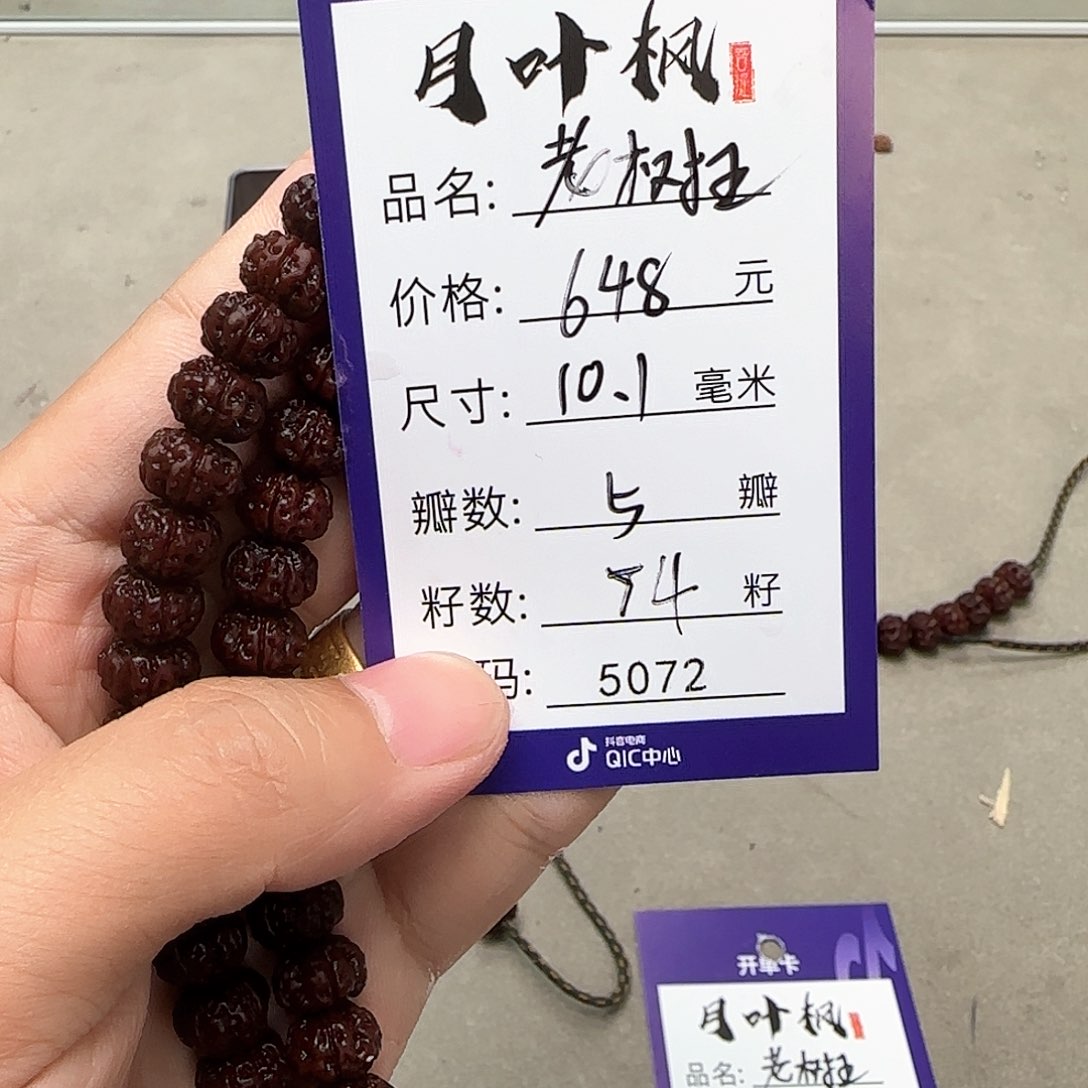 月叶枫
品名: 老树桩
价格: 648 元
尺寸: 10.1 毫米
瓣数: 5 瓣
籽数: 74 籽
码: 5072
抖音电商
QIC中心
开单卡
月叶枫
品名: 老树桩